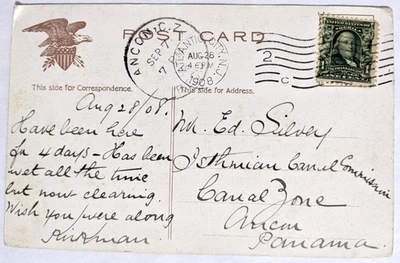 POST CARD
ANCON, C.Z.
SEP 7
7
ATLANTIC CITY, N.J.
AUG 28
4 PM
1908
2
C
This side for Correspondence.
This side for Address.
Aug 28/08.
Have been here
for 4 days - Has been
wet all the time
but now clearing.
Wish you were along
Kirkman.
Mr. Ed. Silvey
Isthmian Canal Commission
Canal Zone
Ancon
Panama.